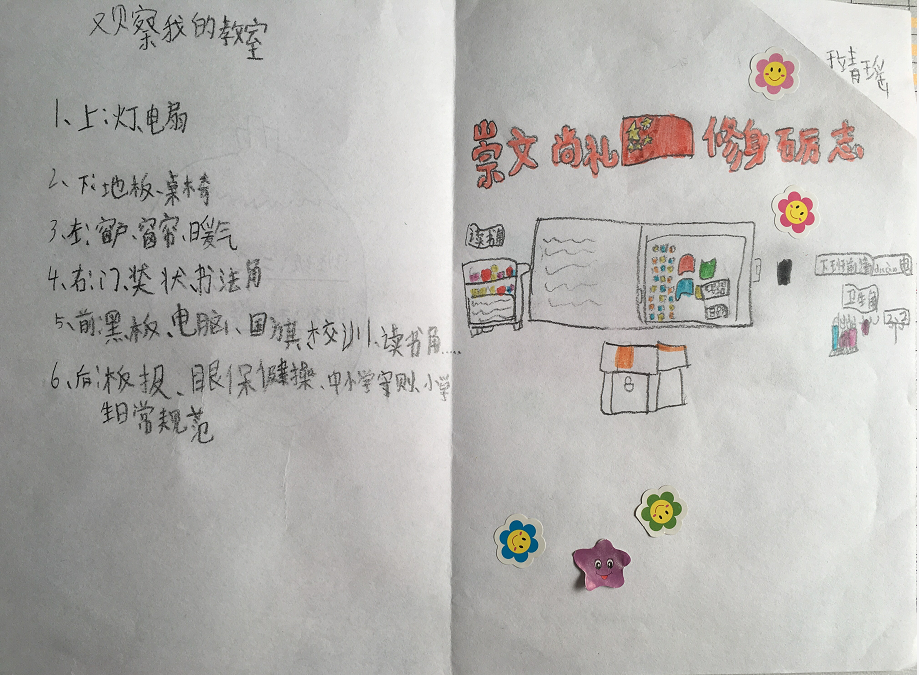 观察我的教室
1、上:灯、电扇
2、下:地板、桌椅
3、左:窗户、窗帘、暖气
4、右:门、奖状、书法角
5、前:黑板、电脑、国旗、校训、读书角……
6、后:板报、眼保健操、中小学守则、小学
生日常规范
玫青瑶
崇文 尚礼 修身 砺志
读书角
卫生角